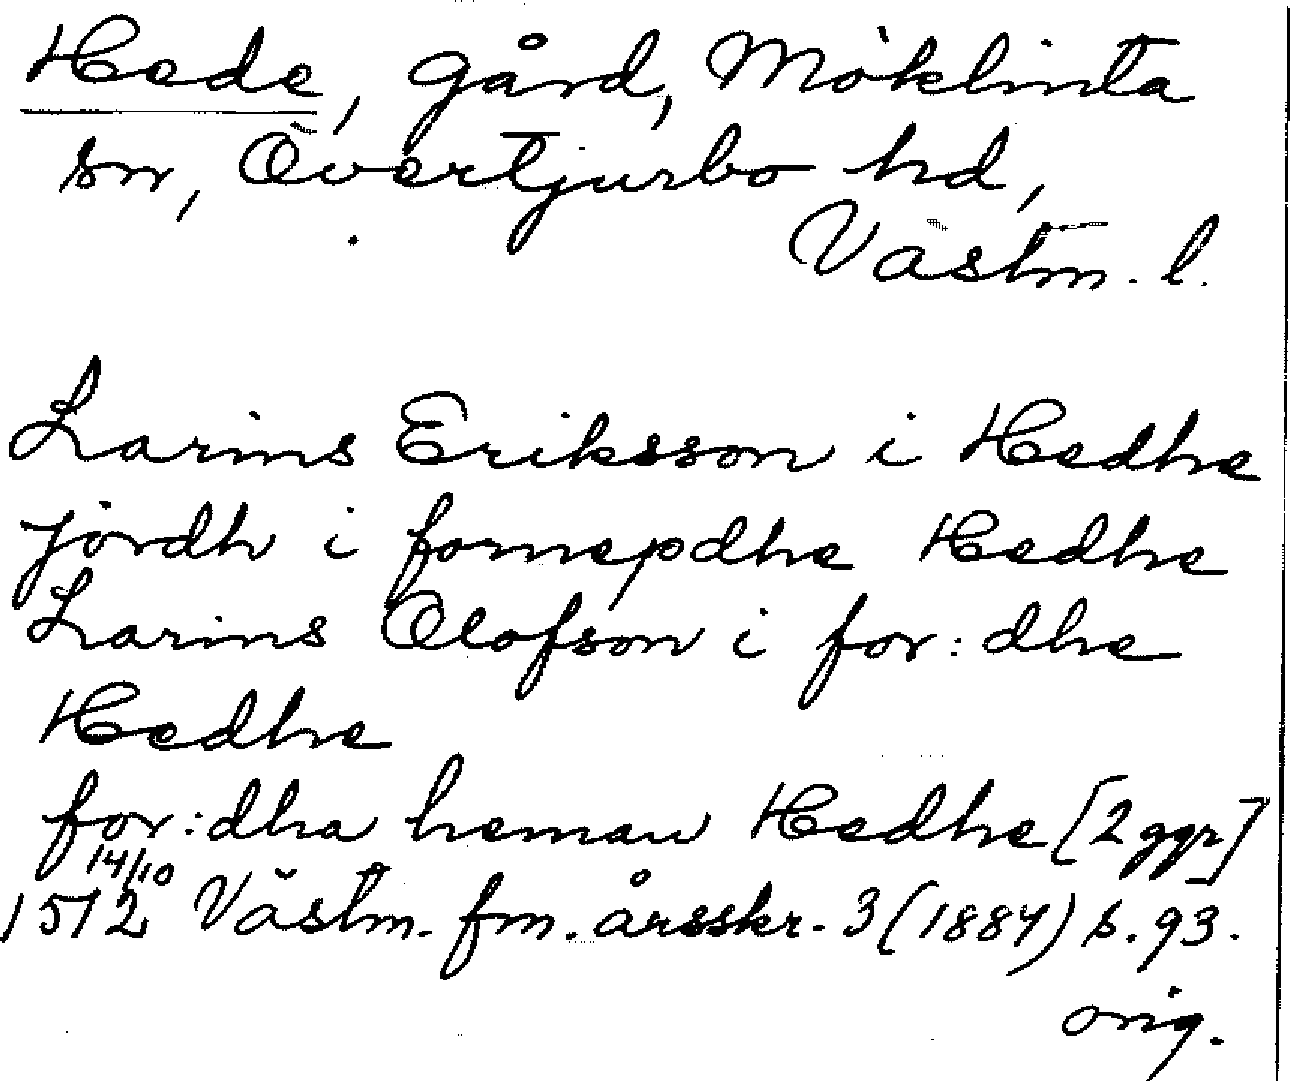 Hede, gård, Möklinta
sn, Övertjurbo hd,
Västm. l.
Larins Eriksson i Hedhe
jördh i fornepdhe Hedhe
Larins Olofson i for:dhe
Hedhe
for:dha heman Hedhe [2 ggr]
14/10
1512 Västm. fm. årsskr. 3 (1884) s. 93.
orig.